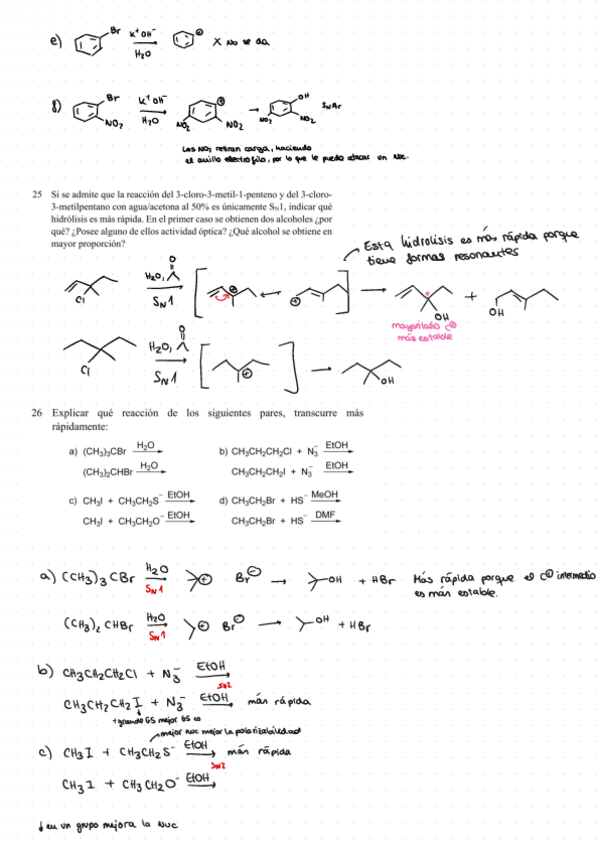 e) Br K⁺OH⁻ H₂O ⊕ X No se da
f) Br NO₂ K⁺OH⁻ H₂O NO₂ ⊕ NO₂ OH NO₂ NO₂ SNAr
Los NO₂ retiran carga, haciendo
el anillo electrofilo, por lo que le puede atacar un Nuc.
25 Si se admite que la reacción del 3-cloro-3-metil-1-penteno y del 3-cloro-
3-metilpentano con agua/acetona al 50% es únicamente SN1, indicar qué
hidrólisis es más rápida. En el primer caso se obtienen dos alcoholes ¿por
qué? ¿Posee alguno de ellos actividad óptica? ¿Qué alcohol se obtiene en
mayor proporción?
Esta hidrolisis es más rápida porque
tiene formas resonantes
Cl H₂O, O SN1 ⊕ ⊕ OH + OH
mayoritario C⊕
más estable
Cl H₂O, O SN1 ⊕ OH
26 Explicar qué reacción de los siguientes pares, transcurre más
rápidamente:
a) (CH₃)₃CBr H₂O
(CH₃)₂CHBr H₂O
b) CH₃CH₂CH₂Cl + N₃⁻ EtOH
CH₃CH₂CH₂I + N₃⁻ EtOH
c) CH₃I + CH₃CH₂S⁻ EtOH
CH₃I + CH₃CH₂O⁻ EtOH
d) CH₃CH₂Br + HS⁻ MeOH
CH₃CH₂Br + HS⁻ DMF
a) (CH₃)₃CBr H₂O SN1 ⊕ Br⊖ OH + HBr Más rápida porque el C⊕ intermedio
es más estable.
(CH₃)₂CHBr H₂O SN1 ⊕ Br⊖ OH + HBr
b) CH₃CH₂CH₂Cl + N₃⁻ EtOH SN2
CH₃CH₂CH₂I + N₃⁻ EtOH más rápida
+grande GS mejor GS es
mejor nuc mejor la polaritabilidad
c) CH₃I + CH₃CH₂S⁻ EtOH SN2 más rápida
CH₃I + CH₃CH₂O⁻ EtOH
↓ en un grupo mejora la Nuc